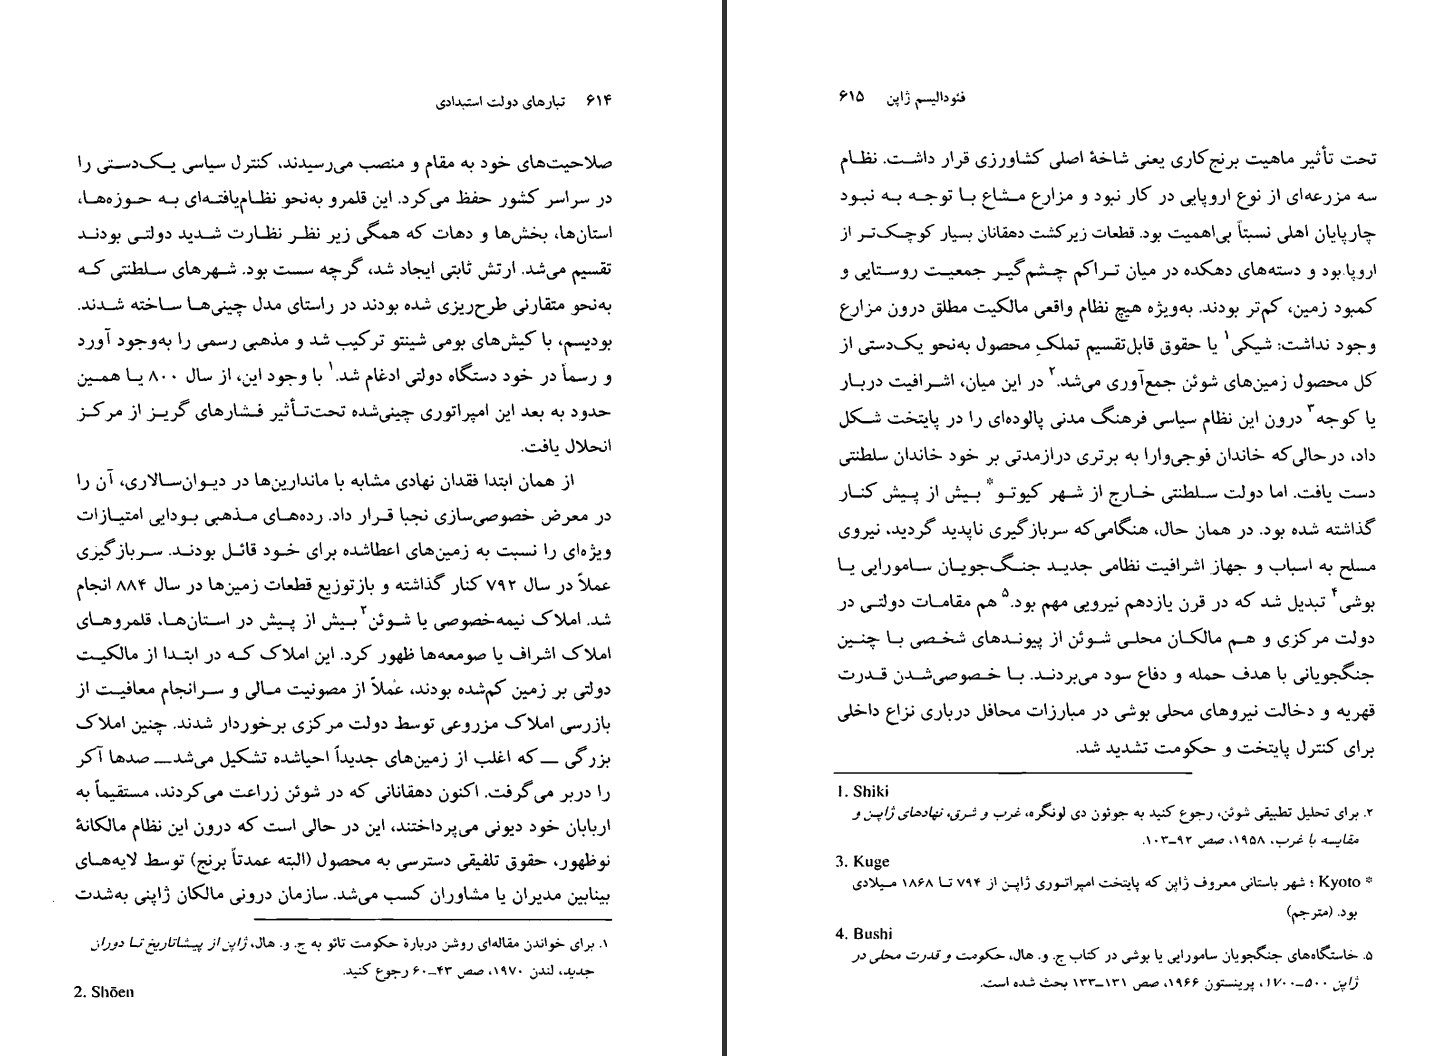 ۶۱۴ تبارهای دولت استبدادی
صلاحیت‌های خود به مقام و منصب می‌رسیدند، کنترل سیاسی یـک‌دستـی را
در سراسر کشور حفظ می‌کرد. این قلمرو به‌نحو نظـام‌یافتـه‌ای بـه حـوزه‌هـا،
استان‌ها، بخش‌ها و دهات که همگی زیر نظـر نظـارت شـدید دولتـی بودنـد
تقسیم می‌شد. ارتش ثابتی ایجاد شد، گرچه سست بود. شـهرهای سـلطنتی کـه
به‌نحو متقارنی طرح‌ریزی شده بودند در راستای مدل چینی‌هـا سـاخته شـدند.
بودیسم، با کیش‌های بومی شینتو ترکیب شد و مذهبی رسمی را به‌وجود آورد
و رسماً در خود دستگاه دولتی ادغام شد.۱ با وجود این، از سال ۸۰۰ یـا همـین
حدود به بعد این امپراتوری چینی‌شده تحت‌تـأثیر فـشارهای گریـز از مرکـز
انحلال یافت.
از همان ابتدا فقدان نهادی مشابه با ماندارین‌ها در دیـوان‌سـالاری، آن را
در معرض خصوصی‌سازی نجبا قـرار داد. رده‌هـای مـذهبی بـودایی امتیـازات
ویژه‌ای را نسبت به زمین‌های اعطاشده برای خـود قائـل بودنـد. سـربازگیری
عملاً در سال ۷۹۲ کنار گذاشته و بازتوزیع قطعات زمین‌ها در سال ۸۸۴ انجام
شد. املاک نیمه‌خصوصی یا شـوئن۲ بـیش از پـیش در استان‌هـا، قلمروهـای
املاک اشراف یا صومعه‌ها ظهور کرد. این املاک کـه در ابتـدا از مالکیـت
دولتی بر زمین کم‌شده بودند، عملاً از مصونیت مـالی و سـرانجام معافیـت از
بازرسی املاک مزروعی توسط دولت مرکزی برخوردار شدند. چنین امـلاک
بزرگی ـــ که اغلب از زمین‌های جدیداً احیاشده تشکیل می‌شدـــ صدها آکر
را دربر می‌گرفت. اکنون دهقانانی که در شوئن زراعت می‌کردند، مستقیمـاً به
اربابان خود دیونی می‌پرداختند، این در حالی است که درون این نظام مالکانۀ
نوظهور، حقوق تلفیقی دسترسی به محصول (البته عمدتاً برنج) توسط لایه‌هـای
بینابین مدیران یا مشاوران کسب می‌شد. سازمان درونی مالکان ژاپنی به‌شدت
۱. برای خواندن مقاله‌ای روشن دربارۀ حکومت تائو به ج. و. هال، ژاپن از پیـشاتاریخ تـا دوران
جدید، لندن ۱۹۷۰، صص ۴۳ــ۶۰ رجوع کنید.
2. Shōen
فئودالیسم ژاپن ۶۱۵
تحت تأثیر ماهیت برنج‌کاری یعنی شاخۀ اصلی کشاورزی قرار داشـت. نظـام
سه مزرعه‌ای از نوع اروپایی در کار نبود و مزارع مـشاع بـا توجـه بـه نبـود
چارپایان اهلی نسبتاً بی‌اهمیت بود. قطعات زیرکشت دهقانان بسیار کوچـک‌تـر از
اروپا بود و دسته‌های دهکده در میان تـراکم چـشم‌گیـر جمعیـت روسـتایی و
کمبود زمین، کم‌تر بودند. به‌ویژه هیچ نظام واقعی مالکیت مطلق درون مزارع
وجود نداشت: شیکی۱ یا حقوق قابل‌تقسیم تملکِ محصول به‌نحو یک‌دستی از
کل محصول زمین‌های شوئن جمع‌آوری می‌شد.۲ در این میان، اشـرافیت دربـار
یا کوجه۳ درون این نظام سیاسی فرهنگ مدنی پالوده‌ای را در پایتخت شـکل
داد، درحالی‌که خاندان فوجی‌وارا به برتری درازمدتی بر خود خاندان سلطنتی
دست یافت. اما دولت سـلطنتی خـارج از شـهر کیوتـو* بـیش از پـیش کنـار
گذاشته شده بود. در همان حال، هنگامی‌که سربازگیری ناپدید گردید، نیروی
مسلح به اسباب و جهاز اشرافیت نظامی جدیـد جنـگ‌جویـان سـامورایی یـا
بوشی۴ تبدیل شد که در قرن یازدهم نیرویی مهم بود.۵ هم مقامـات دولتـی در
دولت مرکزی و هـم مالکـان محلـی شـوئن از پیوندهای شخـصی بـا چنـین
جنگجویانی با هدف حمله و دفاع سود می‌بردنـد. بـا خـصوصی‌شدن قـدرت
قهریه و دخالت نیروهای محلی بوشی در مبارزات محافل درباری نزاع داخلی
برای کنترل پایتخت و حکومت تشدید شد.
1. Shiki
۲. برای تحلیل تطبیقی شوئن، رجوع کنید به جوئون دی لونگره، غرب و شرق، نهادهای ژاپـن و
مقایسه با غرب، ۱۹۵۸، صص ۹۲ــ۱۰۳.
3. Kuge
* Kyoto ؛ شهر باستانی معروف ژاپن که پایتخت امپراتوری ژاپـن از ۷۹۴ تـا ۱۸۶۸ میـلادی
بود. (مترجم)
4. Bushi
۵. خاستگاه‌های جنگجویان سامورایی یا بوشی در کتاب ج. و. هال، حکومت و قـدرت محلـی در
ژاپن ۵۰۰ــ۱۷۰۰، پرینستون ۱۹۶۶، صص ۱۳۱ــ۱۳۳ بحث شده است.